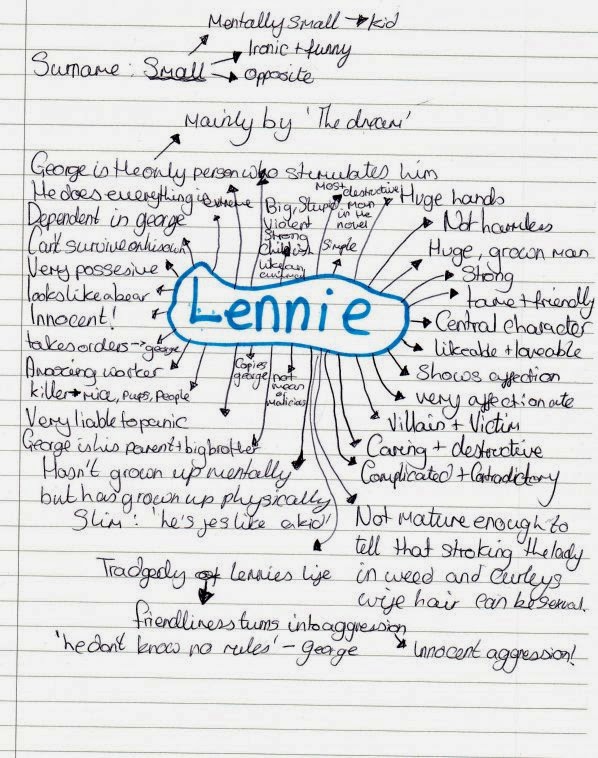 Mentally Small → kid
Surname: Small → Ironic + funny
→ Opposite
Mainly by 'The dream'
George is the only person who stimulates him
He does everything is extreme
Dependent in george
Can't survive on his own
Very possesive
looks like a bear
Innocent!
takes orders → george
Amazing worker
killer → mice, pups, people
Very liable to panic
George is his parent + big brother
Hasn't grown up mentally
but has grown up physically
Slim: 'he's jes like a kid'
Big, Stupid
Violent
Strong
Childish
like an
animal
Most destructive
man
in the
novel
Simple
Lennie
Copies
george
not
mean
or
malicious
Huge hands
Not harmless
Huge, grown man
Strong
tame + friendly
Central character
likeable + loveable
Shows affection
very affectionate
Villain + Victim
Caring + destructive
Complicated + Contradictory
Not mature enough to
tell that stroking the lady
in weed and curleys
wife hair can be sexual.
Tradgedy of lennies life
friendliness turns into aggression
'he don't know no rules' - george
Innocent aggression!